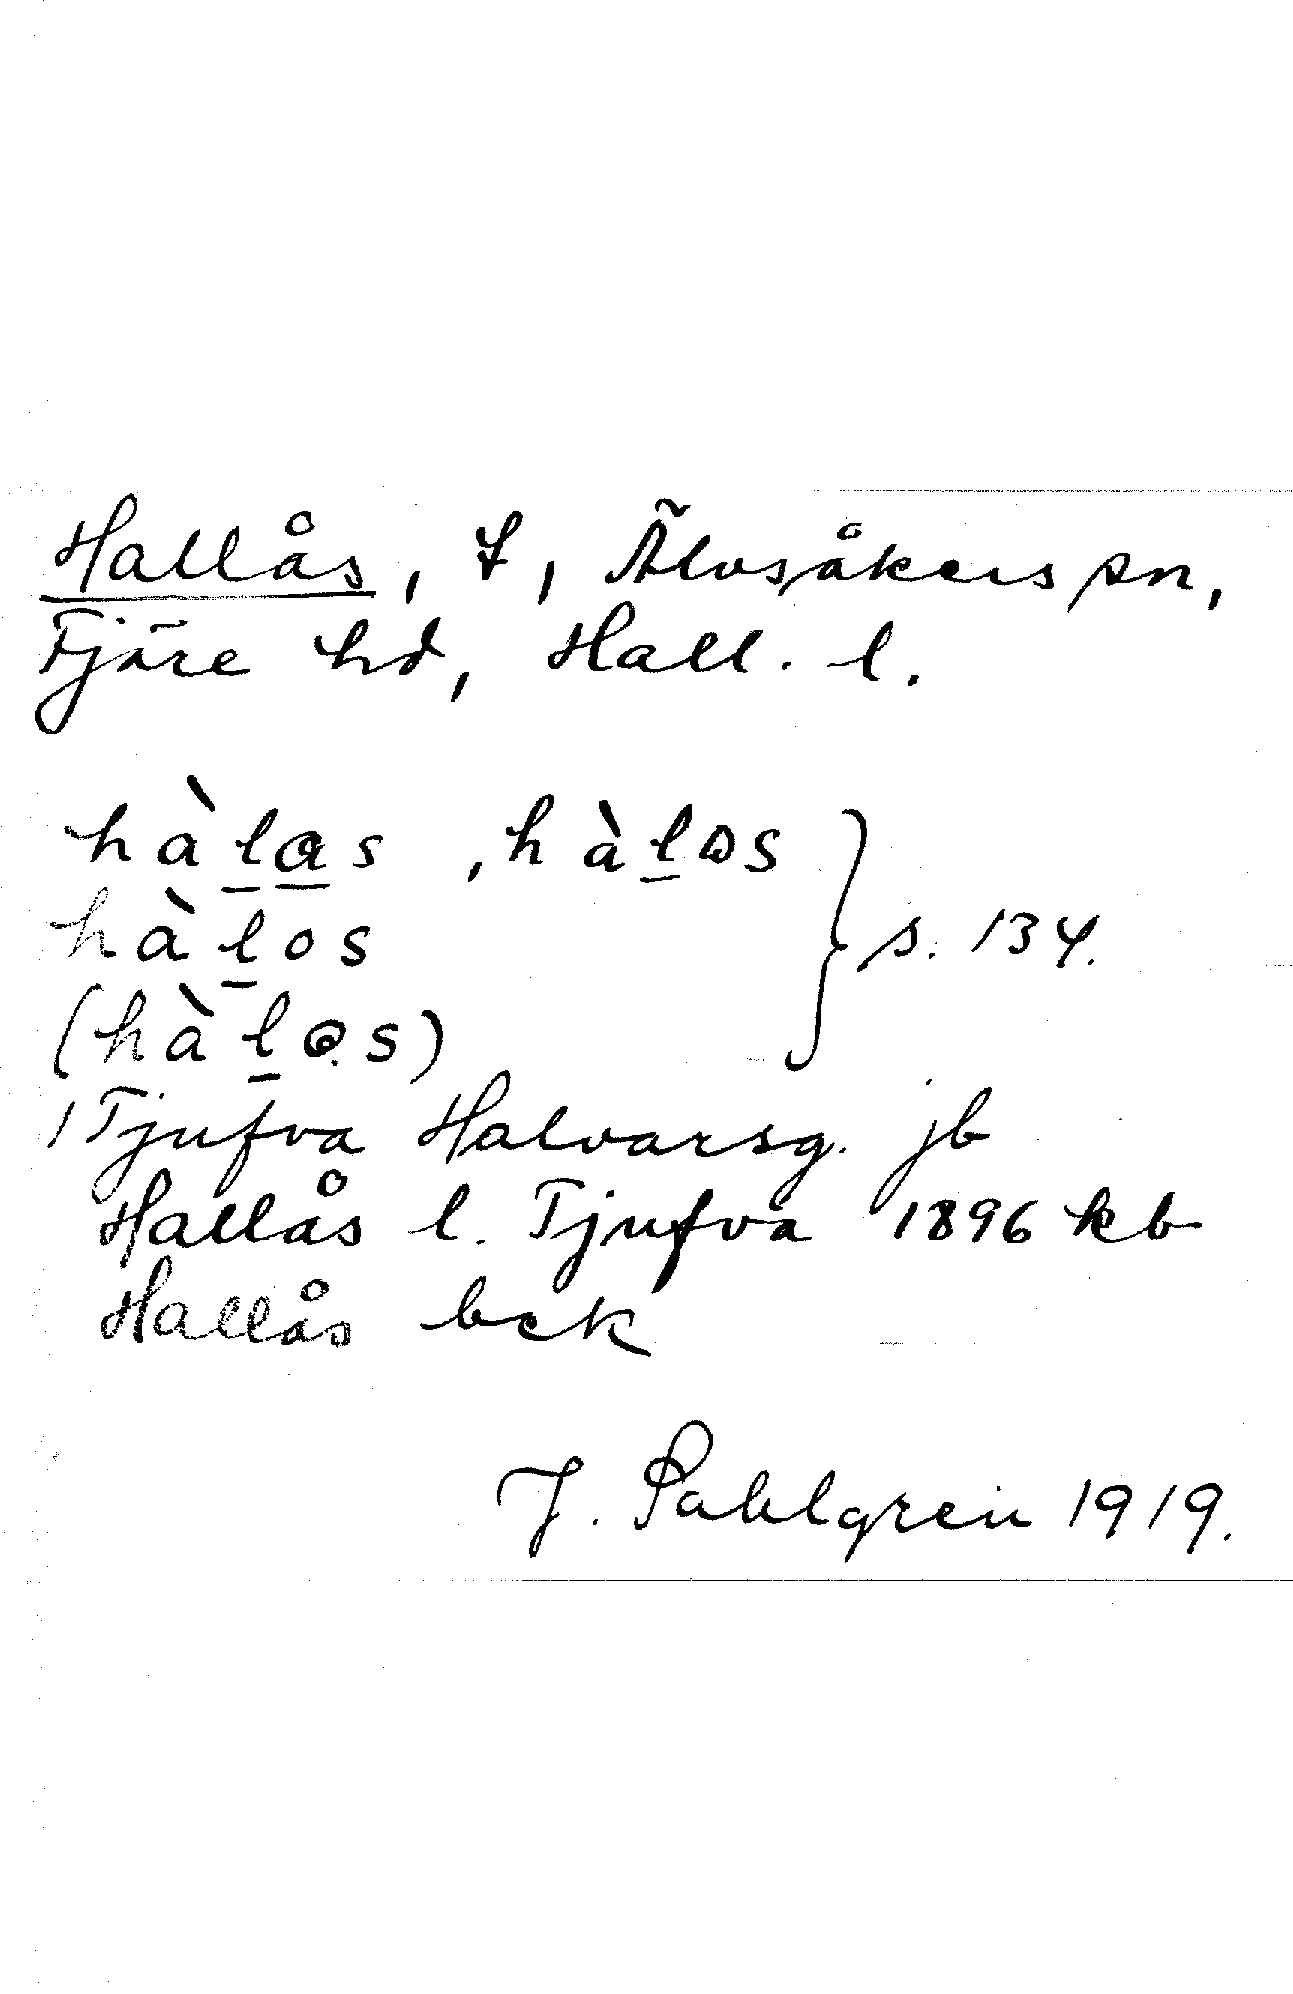 Hallås, t, Älvsåkers sn,
Fjäre hd, Hall. l.
hàlas, hàlɒs
hàlos
(hàlo̩s)
} s. 134.
1 Tjufva Halvarsg. jb
Hallås l. Tjufva 1896 kb
Hallås bck
J. Sahlgren 1919.